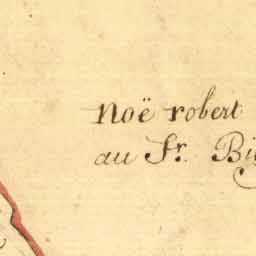 Noë robert
au Sr. Big